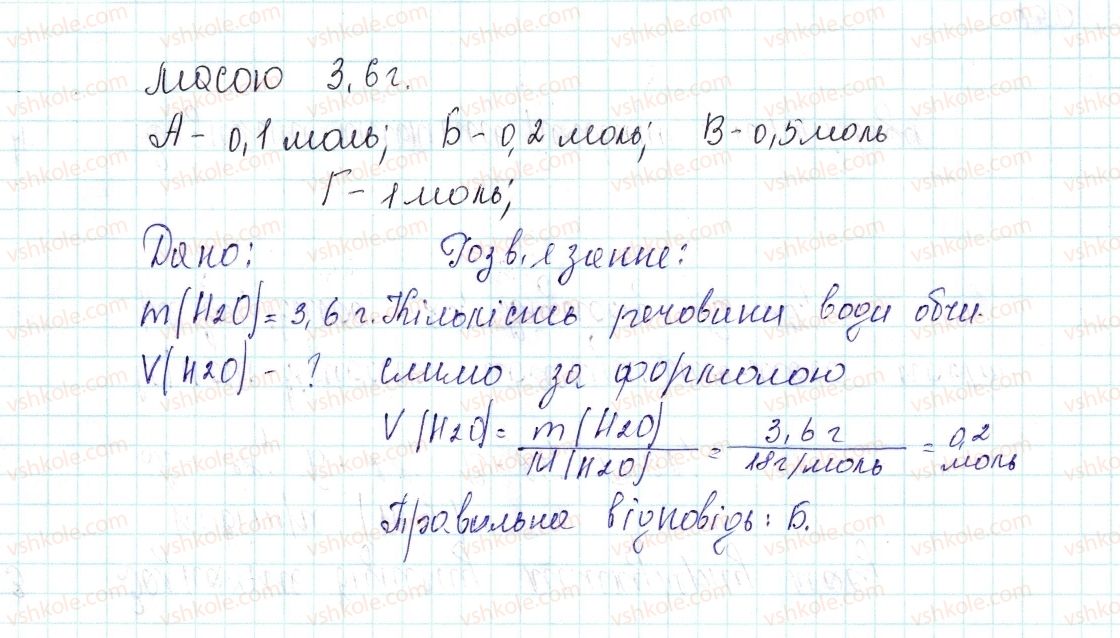 масою 3,6 г.
А - 0,1 моль; Б - 0,2 моль; В - 0,5 моль
Г - 1 моль;
Дано: Розв'язання:
m(H2O) = 3,6 г. Кількість речовини води обчи-
V(H2O) - ? слимо за формолою
V(H2O) = m(H2O) / M(H2O) = 3,6 г / 18 г/моль = 0,2 моль
Правильна відповідь: Б.